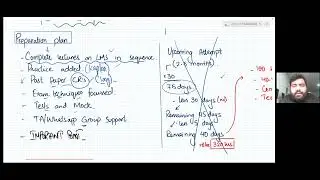 Preparation plan
- Complete lectures on LMS in sequence
- Practice added Kaplan
- Past Paper CR's long
- Exam techniques focused
- Tests and Mock
- TA/Whatsapp Group Support
- IMPORTANT
Upcoming Attempt
(2-3 months)
75 days
- les 30 days
Remaining 45 days
- les 5 days
Remaining 40 days
320 hrs